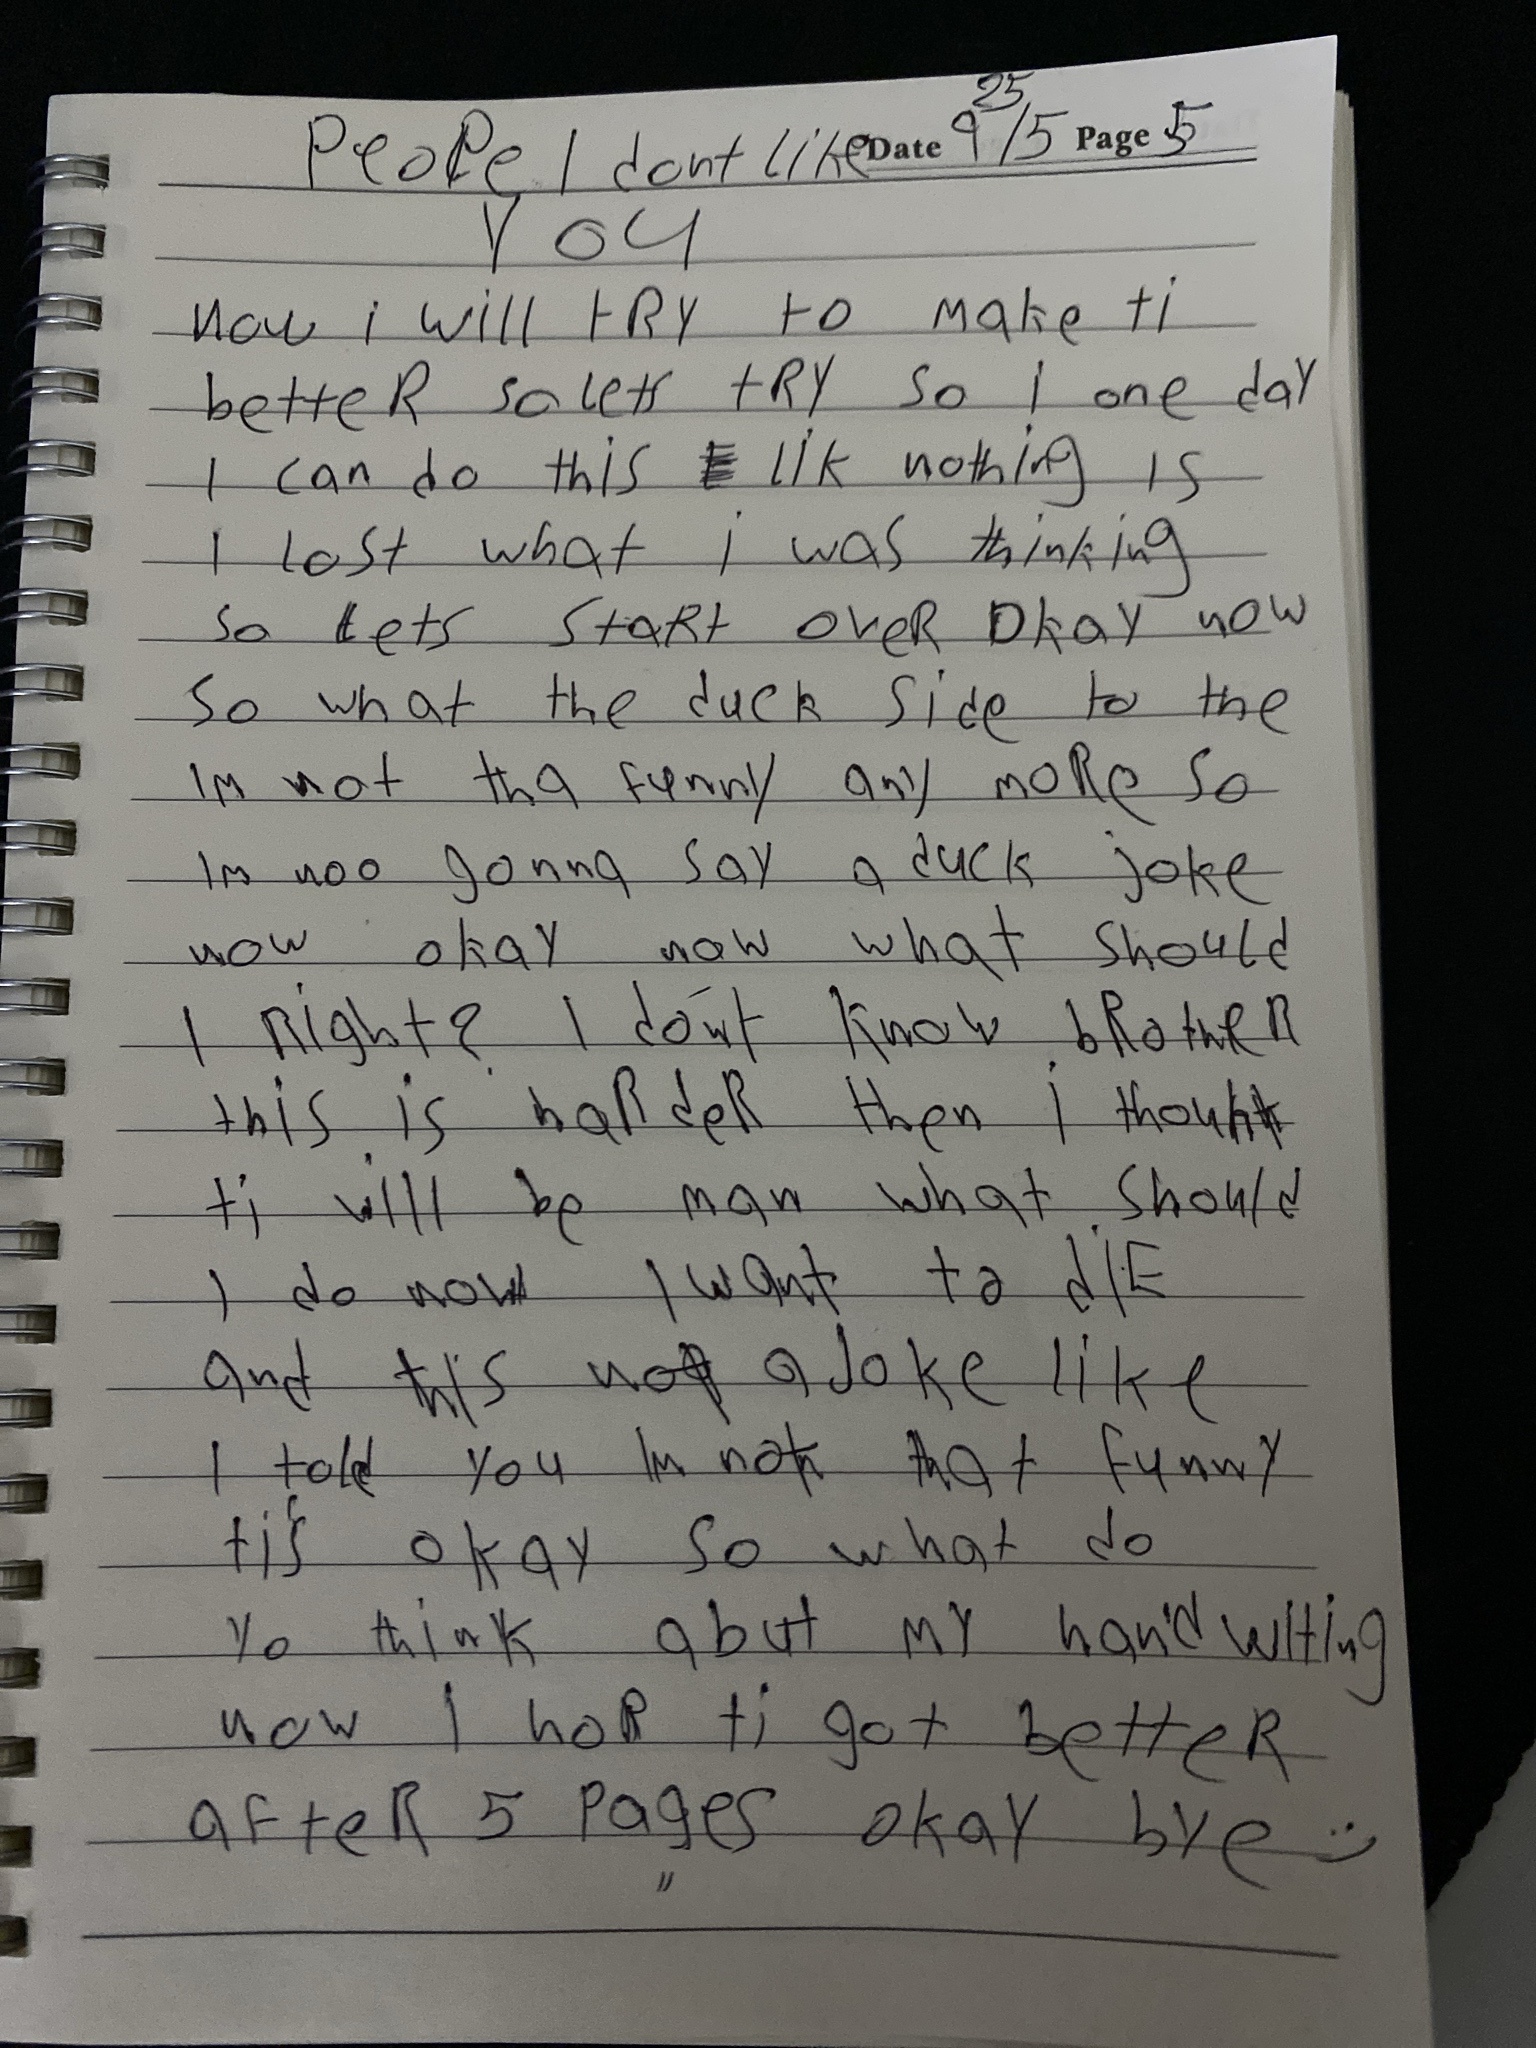 People I dont like Date 9/5 25 Page 5
YOU
now i will tRY to make ti
betteR so lets tRY so I one day
I can do this lik nothing is
I Lost what i was thinking
so Lets staRt oveR Okay now
so what the duck side to the
Im not tha funny any moRe so
Im noo gonna say a duck joke
now okay now what should
I Right? I don't know bRotheR
this is haRdeR then i thouht
ti will be man what should
I do now I want to diE
and this not a Joke like
I told you Im not that funny
ti's okay so what do
Yo think abut my handwiting
now I hoP ti got betteR
afteR 5 Pages okay bye :)
"